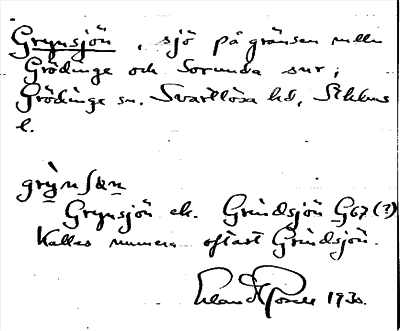 Grynsjön, sjö på gränsen mellan
Grödinge och Sorunda snr;
Grödinge sn. Svartlösa hd, Sthlms
l.
grỳnʃön
Grynsjön ek. Grindsjön G67 (?)
Kallas numera oftast Grindsjön.
1930.